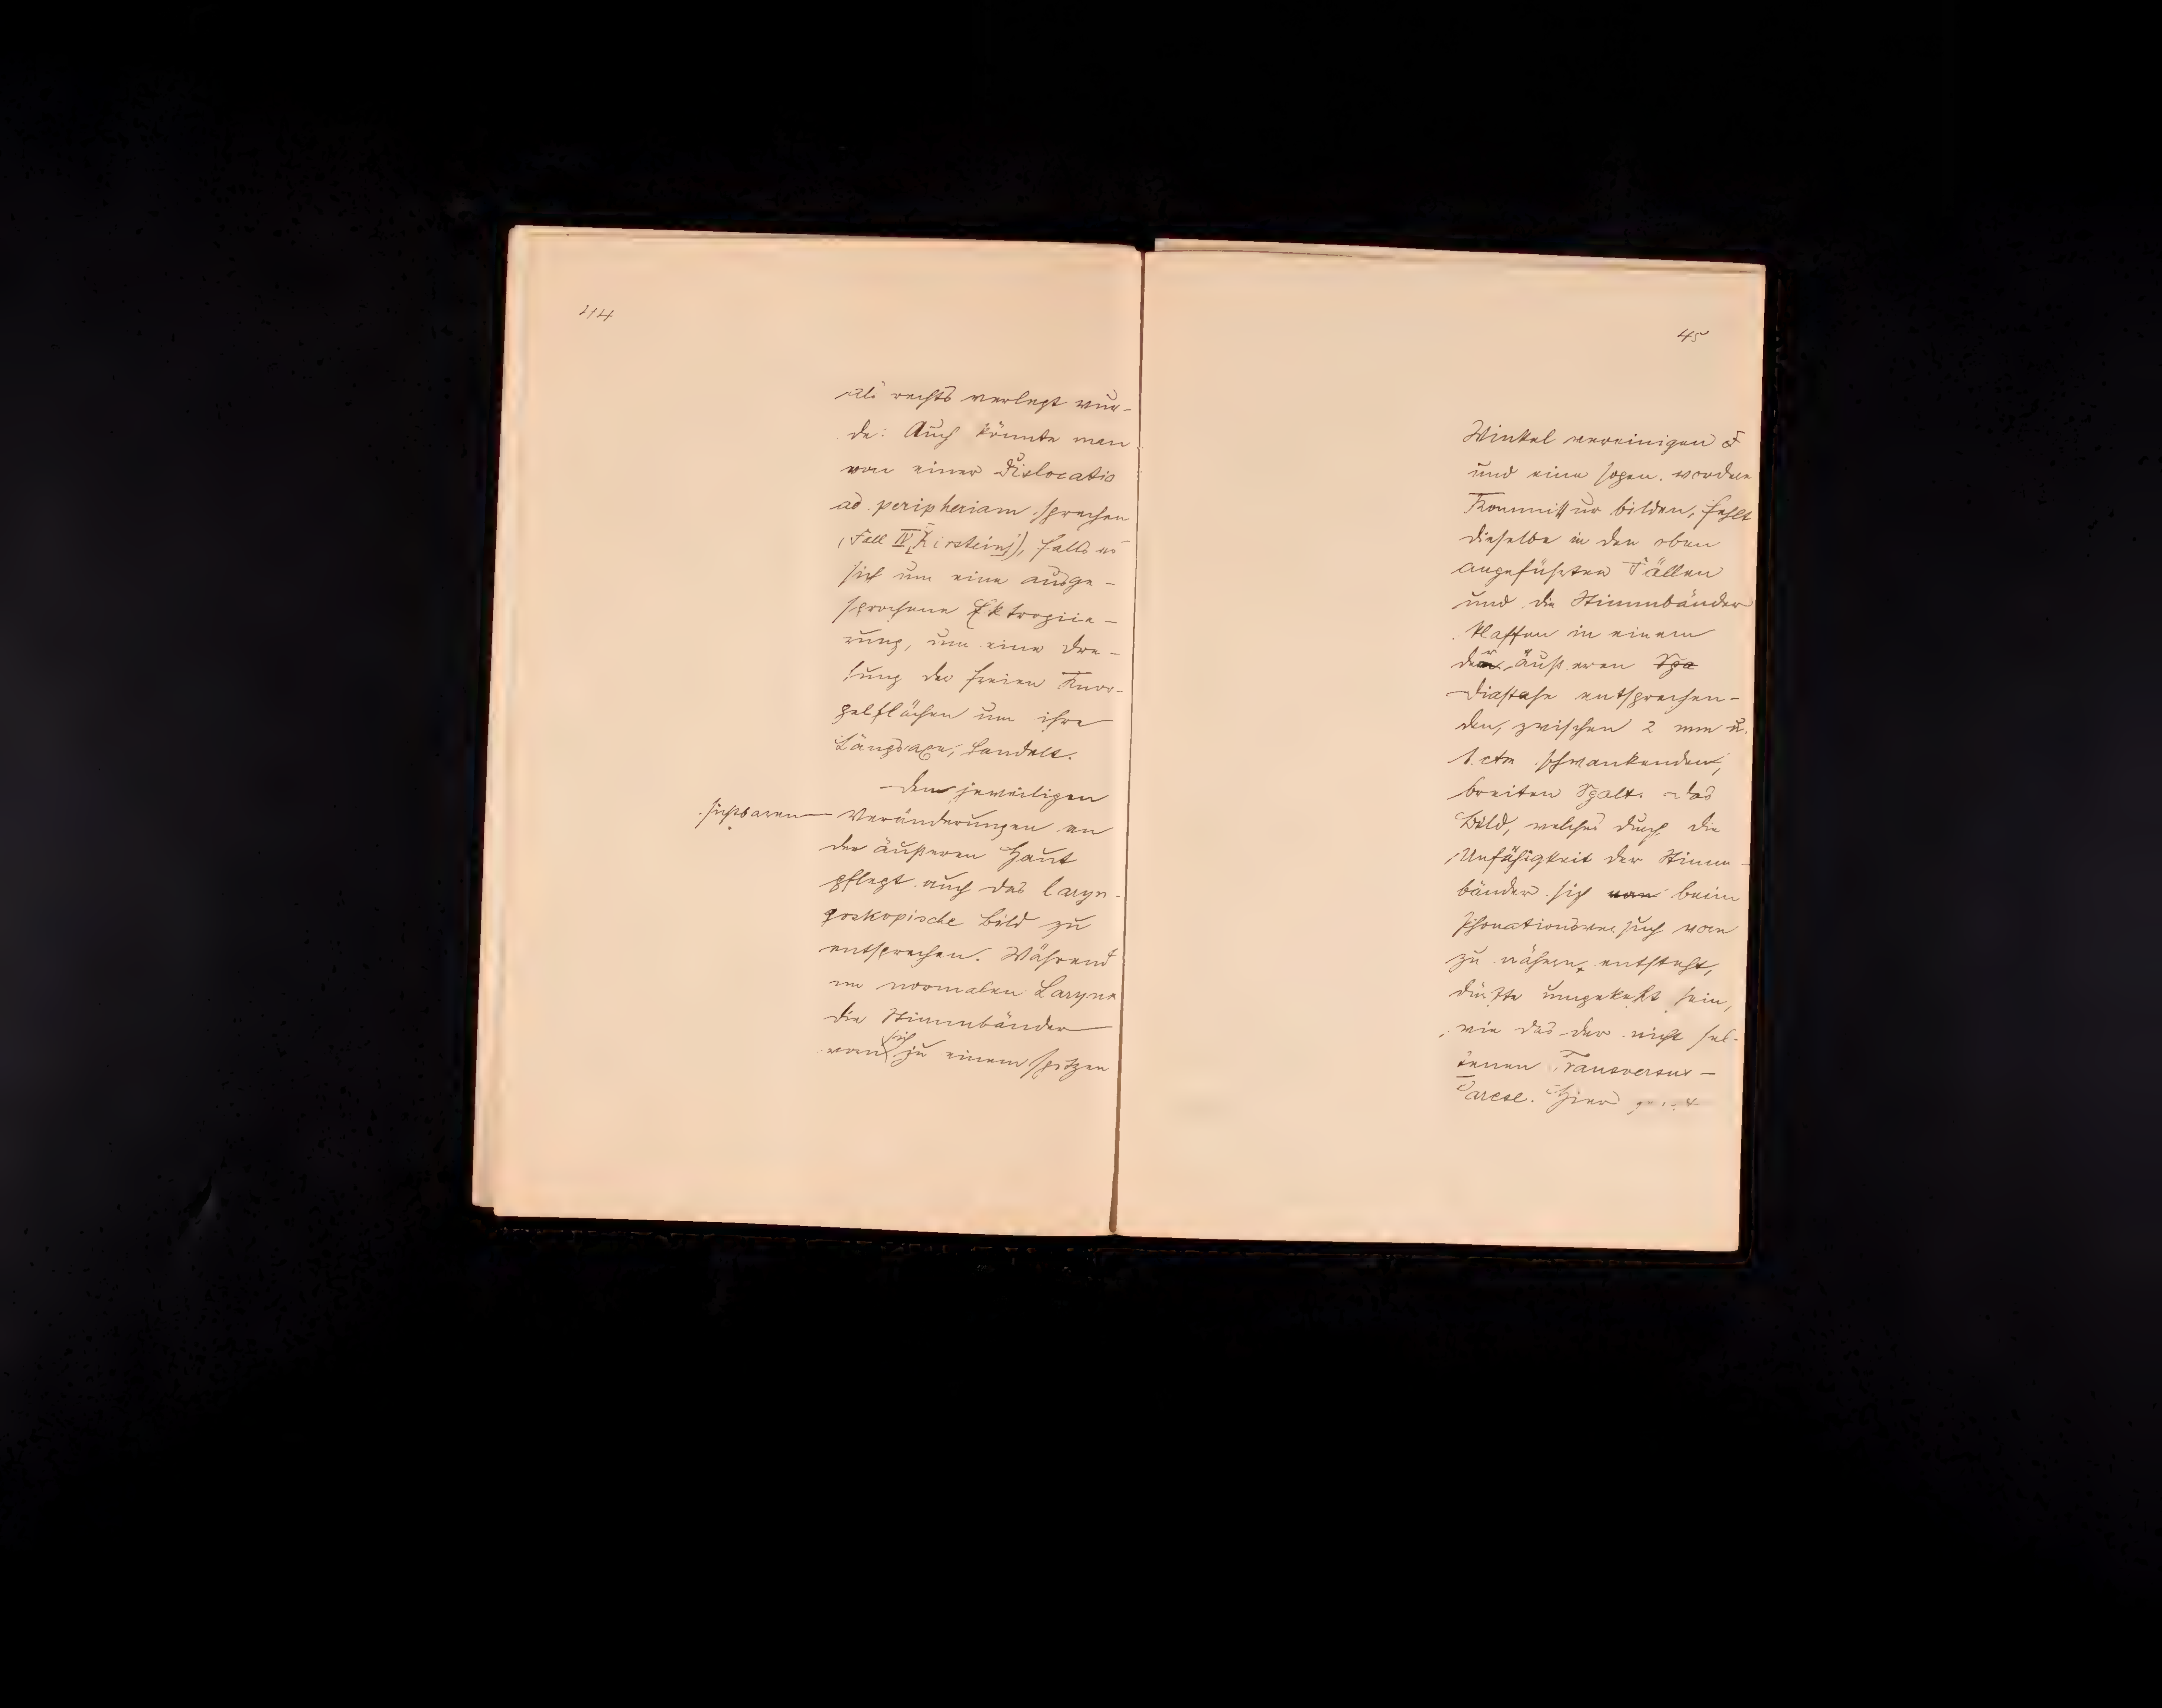 44
als rechts verlegt wur-
de: Auch könnte man
von einer Dislocatio
ad peripheriam sprechen
(Fall IV, Kirstein), falls es
sich um eine ausge-
sprochene Ektropiie-
rung, um eine Dre-
hung der freien Knor-
pelflächen um ihre
Längsaxe, handelt.
Den jeweiligen
sichtbaren Veränderungen an
der äußeren Haut
pflegt auch das laryn-
goskopische Bild zu
entsprechen. Während
im normalen Larynx
die Stimmbänder
vorn sich zu einem spitzen
45
Winkel vereinigen
und eine sogen. vordere
Kommissur bilden, fehlt
dieselbe in den oben
angeführten Fällen
und die Stimmbänder
klaffen in einem
der äußeren Spa
Diastase entsprechen-
den, zwischen 2 mm u.
1 ctm schwankenden,
breiten Spalt. Das
Bild, welches durch die
Unfähigkeit der Stimm-
bänder sich vorn beim
Phonationsversuch vorn
zu nähern, entsteht,
dürfte umgekehrt sein,
wie das der nicht sel-
tenen Transversus-
Parese. Hier